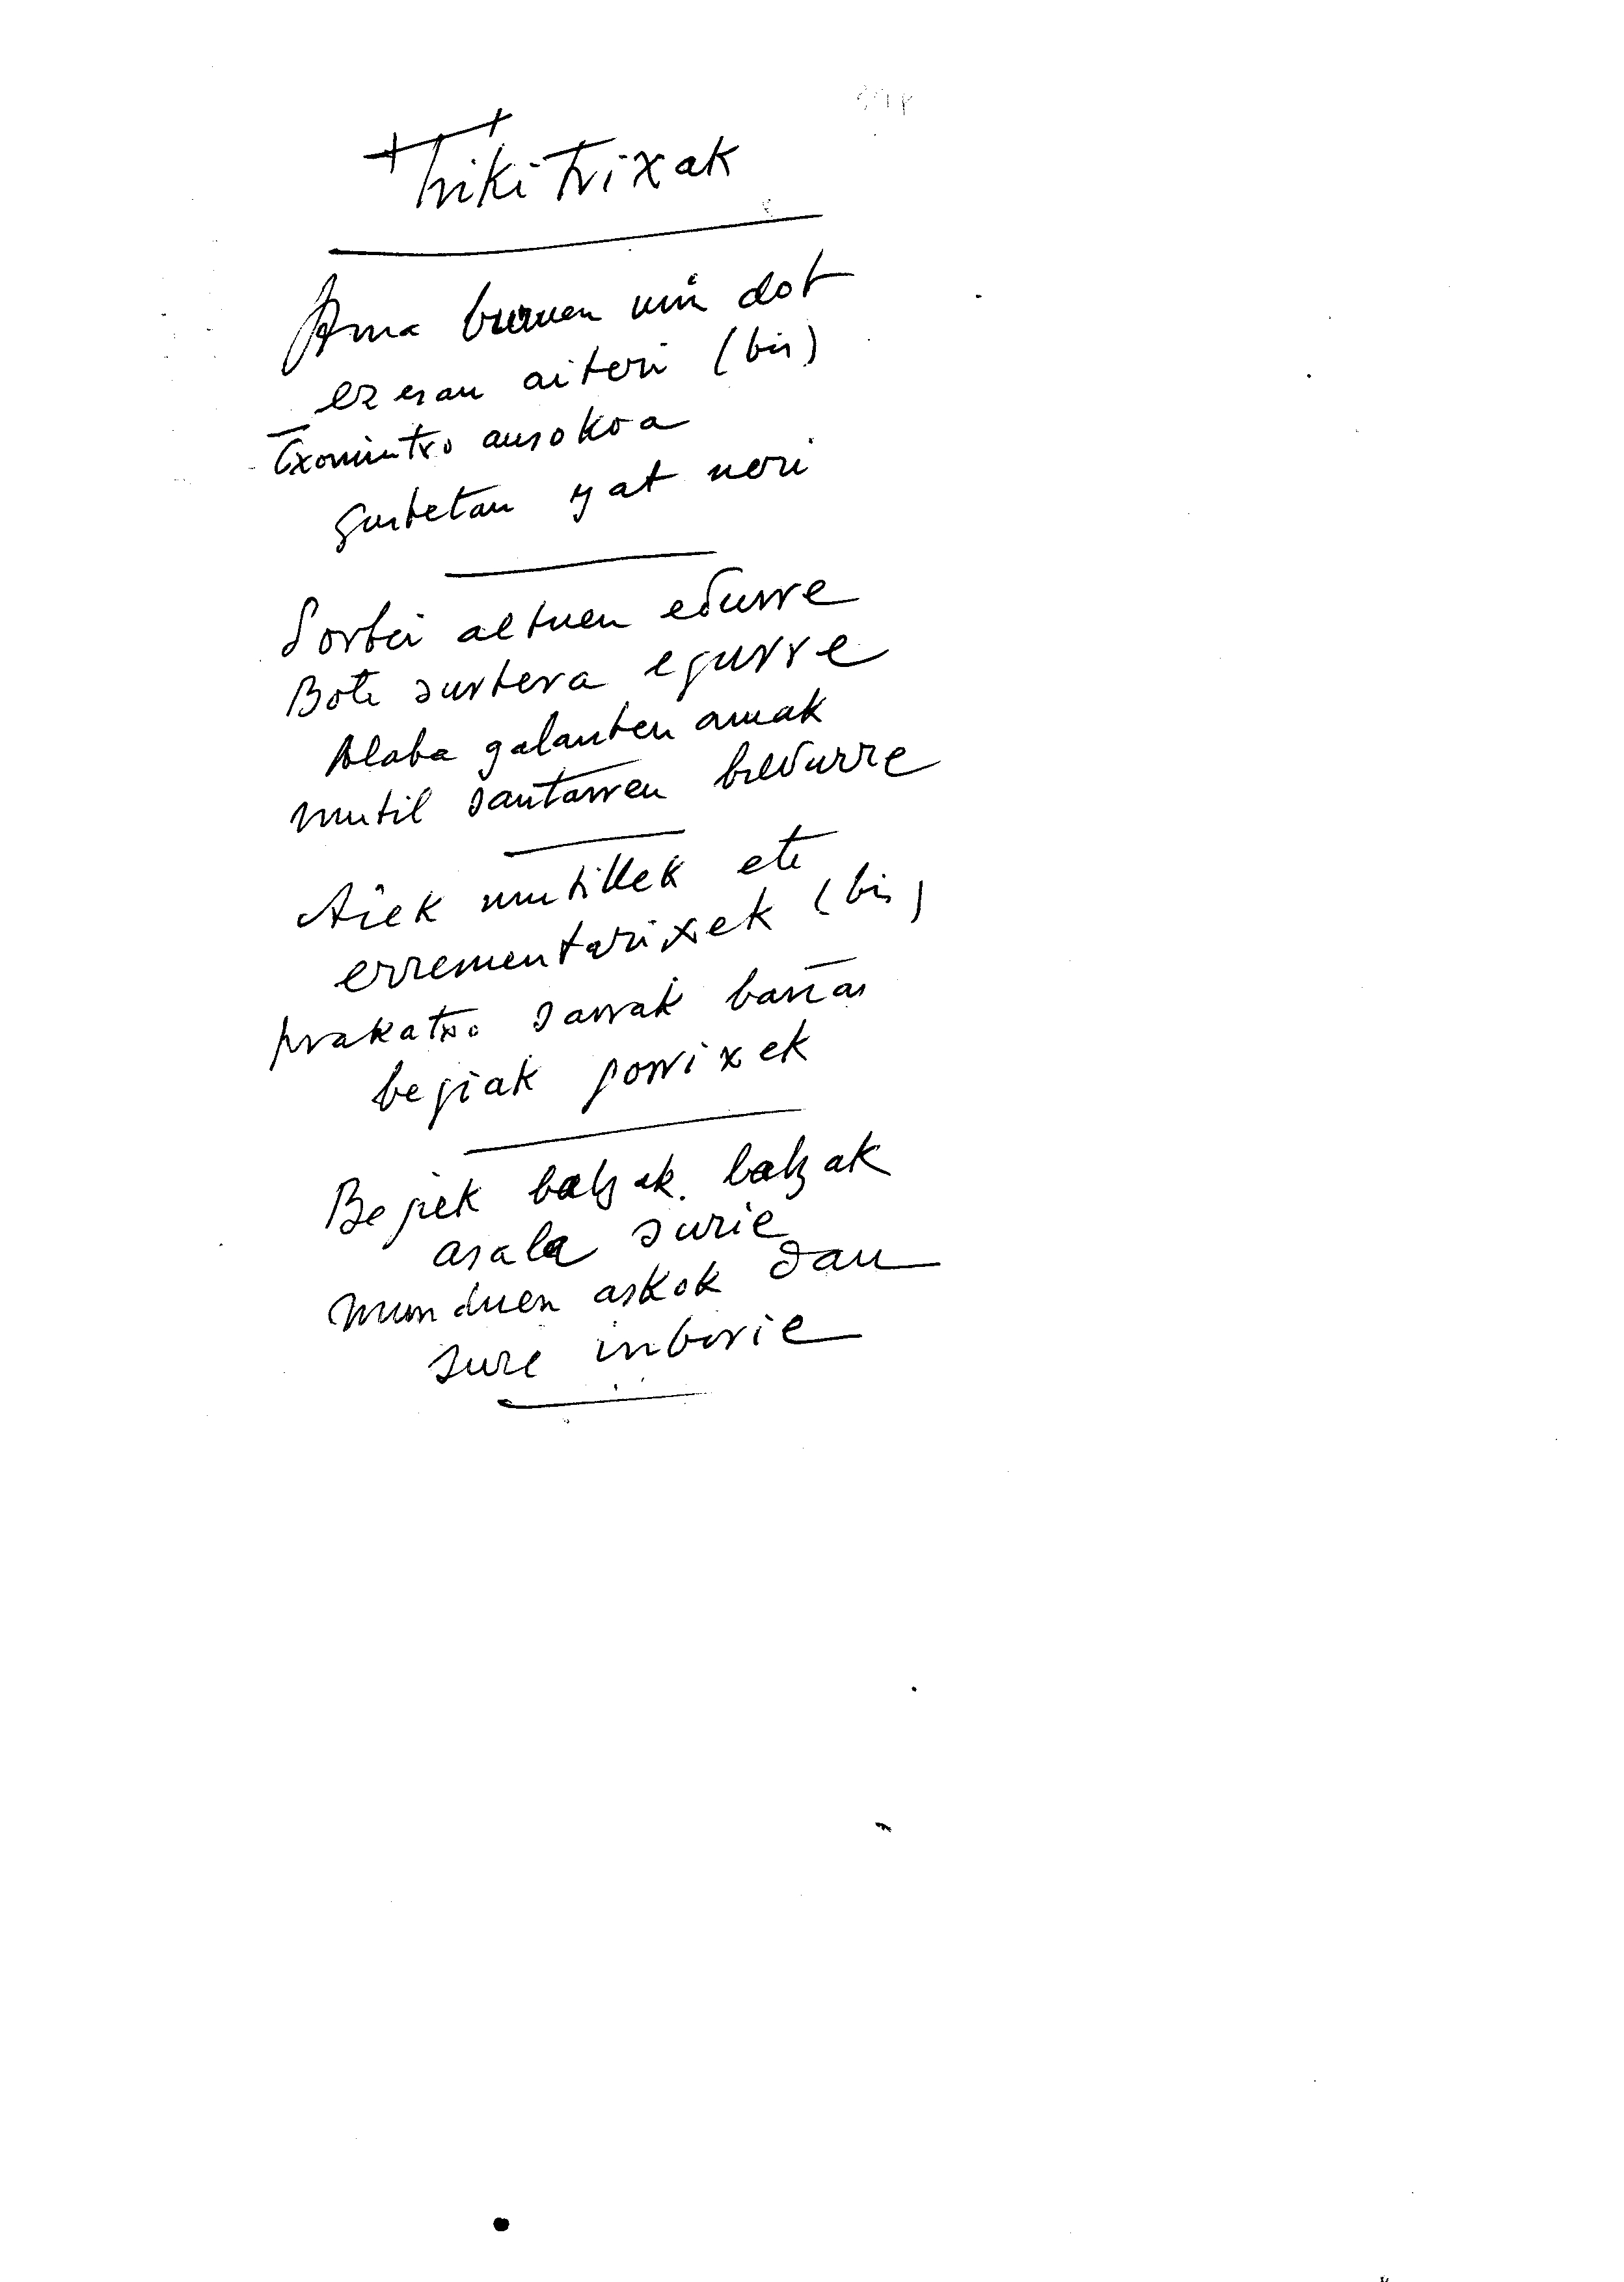 Trikitrixak
Ama buruen min dot
ez esan aiteri (bis)
Txomintxo ausokoa
gustetan yat neri
Sorbei altuen edurre
Bota surtera egurre
Alaba galanten amak
mutil santarren bildurre
Aiek mutillek eta
errementarixek (bis)
prakatxo sarrak bañas
begiak gorrixek
Begiek baltzak baltzak
asala surie
munduen askok dau
sure inbirie